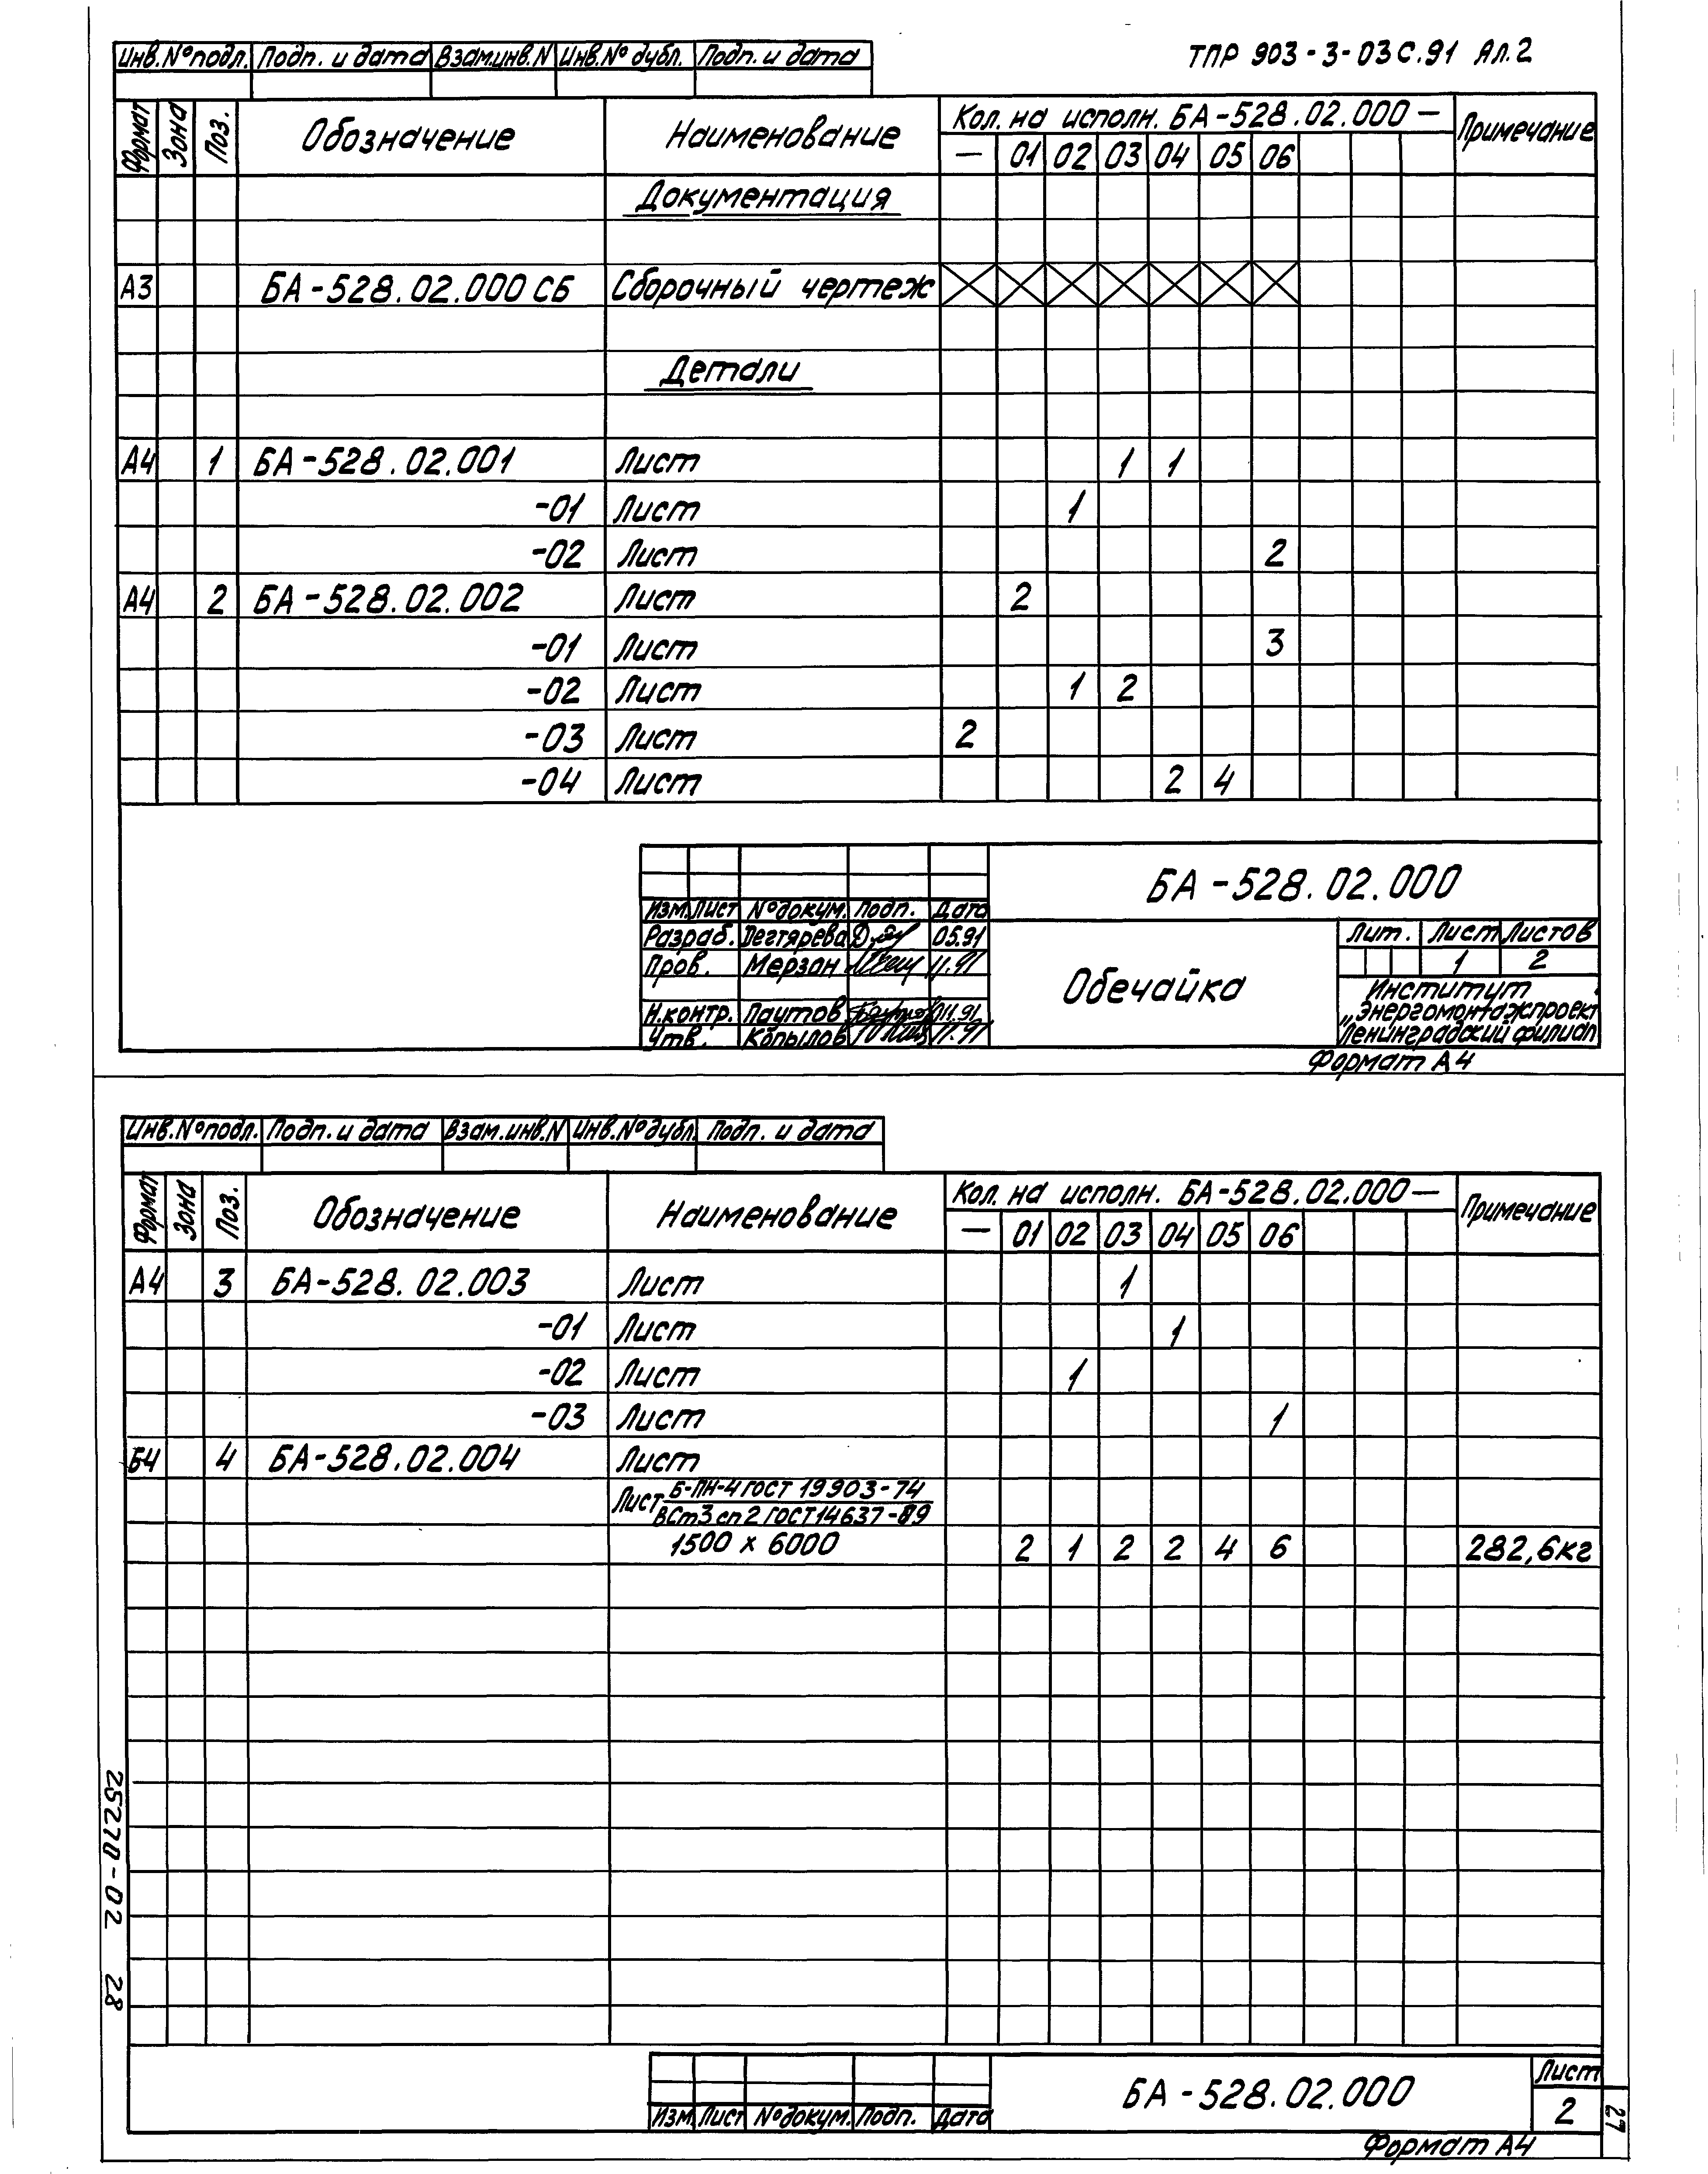 ТПР 903-3-03С.91 Ал.2
Инв.№подл. Подп. и дата Взам.инв.N Инв.№дубл. Подп. и дата
Формат Зона Поз. Обозначение Наименование Кол. на исполн. БА-528.02.000— Примечание
— 01 02 03 04 05 06
Документация
А3 БА-528.02.000 СБ Сборочный чертеж
Детали
А4 1 БА-528.02.001 Лист 1 1
-01 Лист 1
-02 Лист 2
А4 2 БА-528.02.002 Лист 2
-01 Лист 3
-02 Лист 1 2
-03 Лист 2
-04 Лист 2 4
БА-528.02.000
Изм. Лист №докум. Подп. Дата
Разраб. Дегтярева 05.91
Пров. Мерзан 11.91
Н.контр. Паутов 011.91
Утв. Копылов 11.91
Обечайка
Лит. Лист Листов
1 2
Институт
„Энергомонтажпроект
Ленинградский филиал
Формат А4
Инв.№подл. Подп. и дата Взам.инв.N Инв.№дубл. Подп. и дата
Формат Зона Поз. Обозначение Наименование Кол. на исполн. БА-528.02.000— Примечание
— 01 02 03 04 05 06
А4 3 БА-528.02.003 Лист 1
-01 Лист 1
-02 Лист 1
-03 Лист 1
Б4 4 БА-528.02.004 Лист
Лист Б-ПН-4 ГОСТ 19903-74
ВСт3сп2 ГОСТ 14637-89
1500 х 6000 2 1 2 2 4 6 282,6кг
25270-02 28
БА-528.02.000
Лист
2
Изм. Лист №докум. Подп. Дата
27
Формат А4